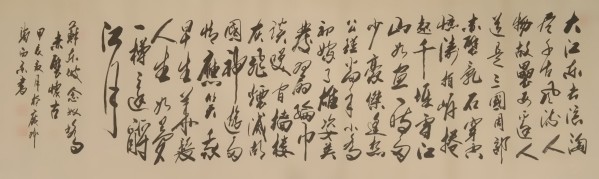 大江东去浪淘
尽千古风流人
物故垒西边人
道是三國周郎
赤壁乱石穿空
惊涛拍岸捲
起千堆雪江
山如画一时多
少豪傑遥想
公瑾当年小乔
初嫁了雄姿英
發羽扇纶巾
谈笑间樯橹
灰飛烟滅故
國神游多
情應笑我
早生华髮
人生如夢
一樽还酹
江月
蘇东坡念奴娇
赤壁懷古